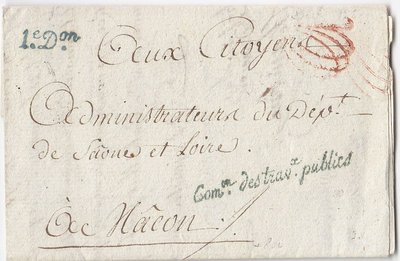 1.e Don
Aux Citoyens
Administrateurs du Dépt.
de Sâone et Loire.
Com.on des trav.x publics
À Mâcon